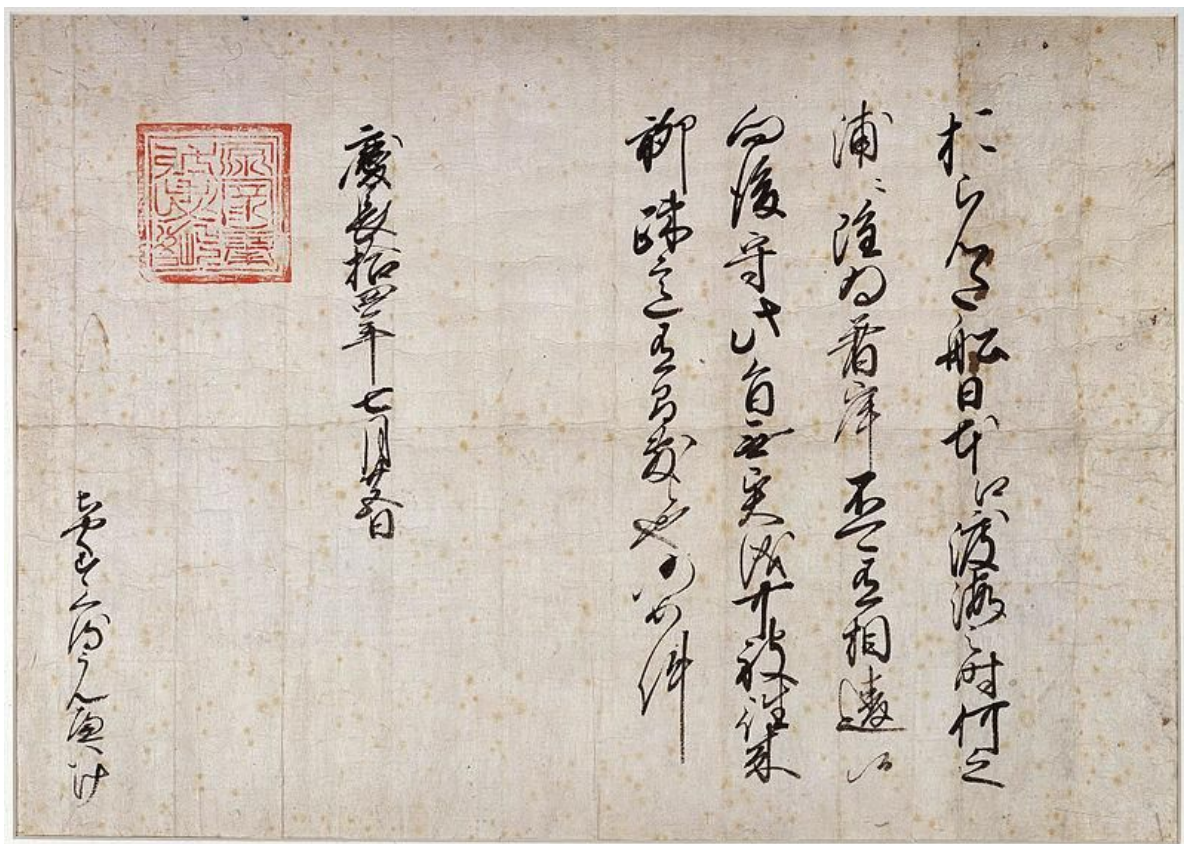 おらんた船日本江渡海之時何之
浦々雖為着岸不可有相違候
向後守此旨無異儀可被往来
聊疎意有間敷候也仍如件
慶長拾四年七月廿五日
源家康忠恕
ちやくすくるうんへいけ